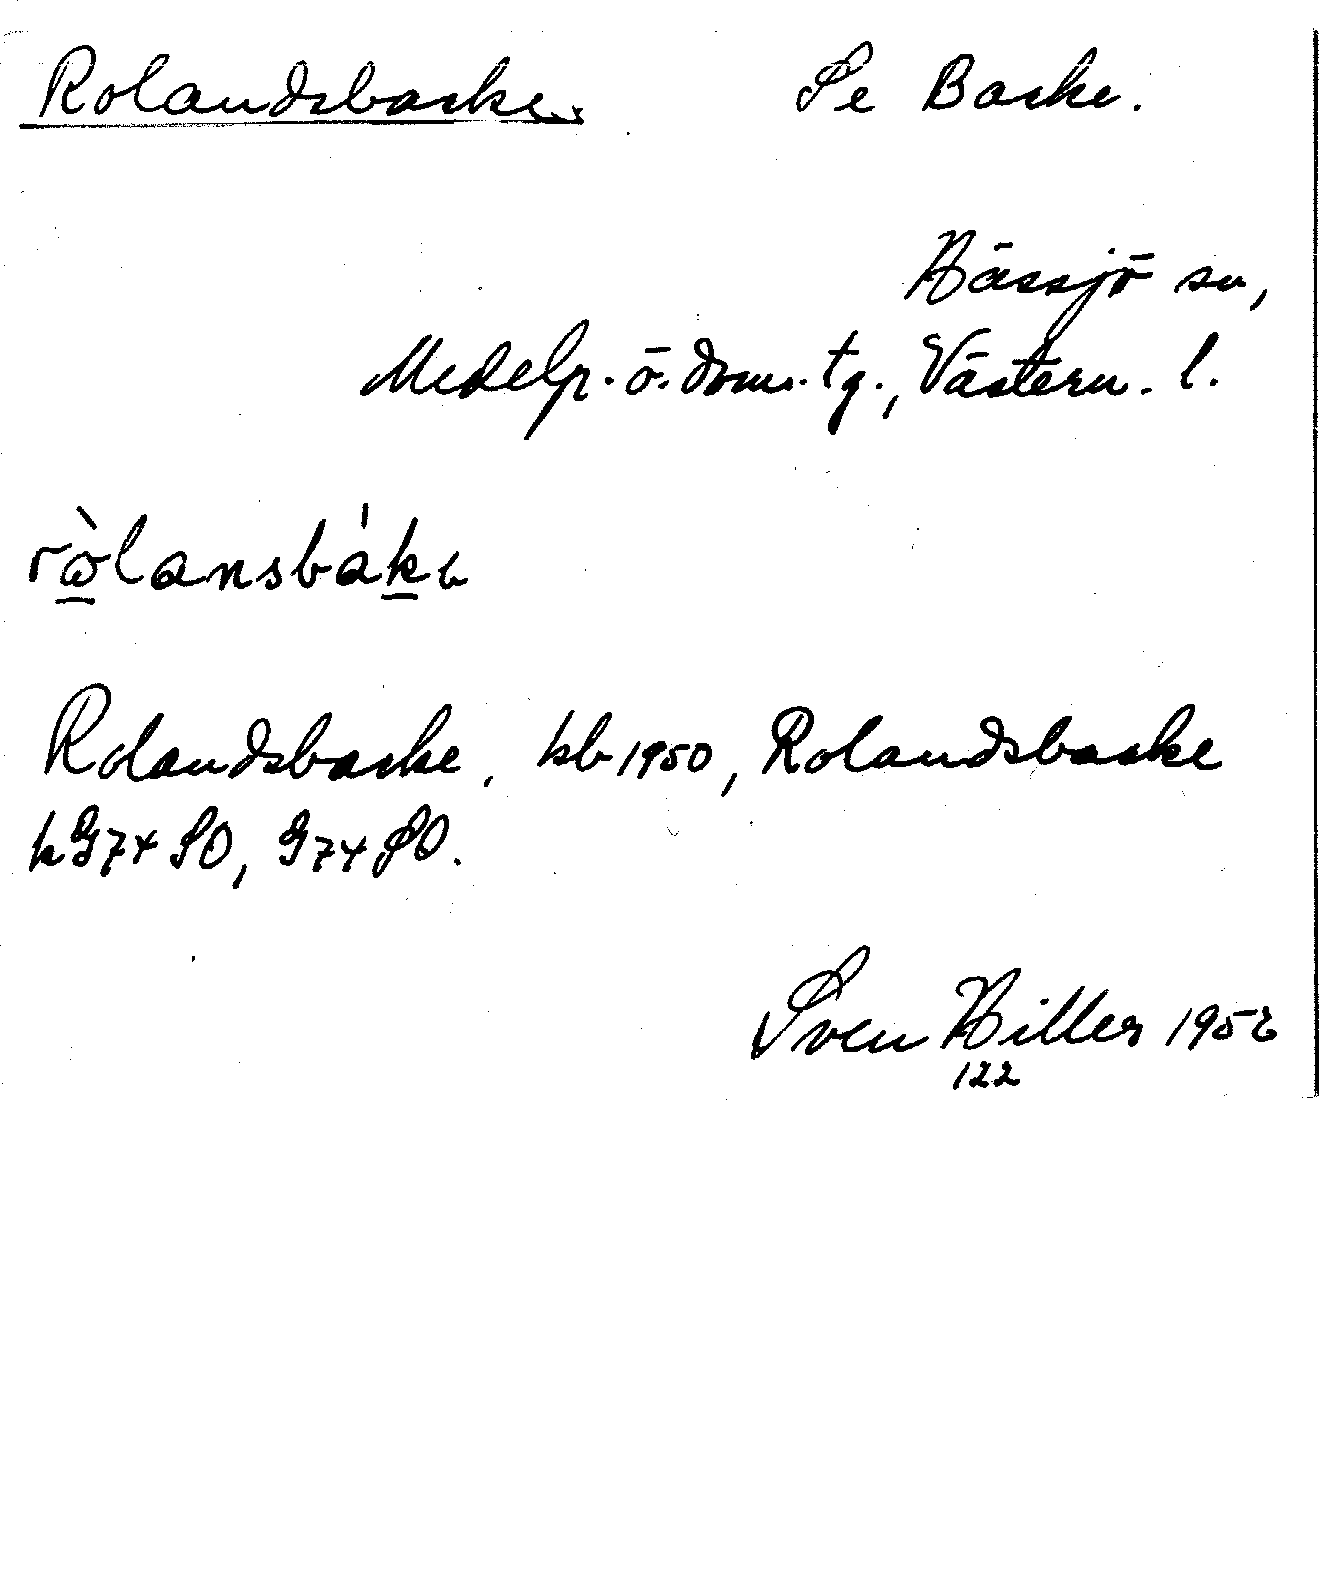 Rolandsbacke. Se Backe.
Hässjö sn,
Medelp. ö. doms. tg., Västern. l.
rò̱lansbáḵɩ
Rolandsbacke, kb 1950, Rolandsbacke
k G74 SO, G74 SO.
Sven Hiller 1952
122